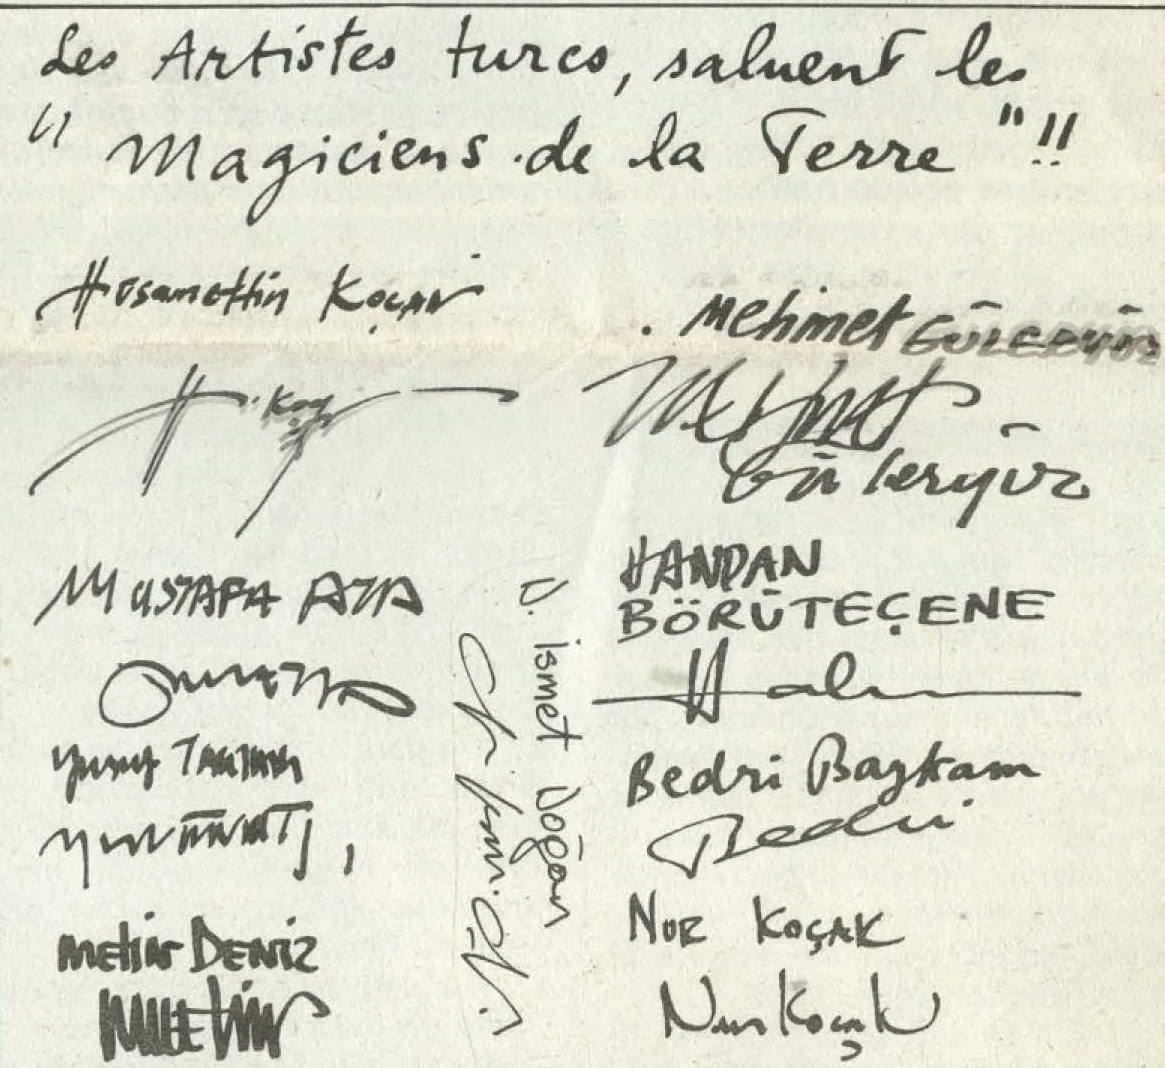 Les Artistes turcs, saluent les
" Magiciens de la Terre "!!
Hüsamettin Koçan
Mehmet GÜLERYÜZ
H. Koç
Mehmet
Güleryüz
MUSTAFA ATA
Yusuf TAKTAK
Metin DENİZ
METİN
D. İsmet Doğan
HANDAN
BÖRÜTEÇENE
Bedri Baykam
Bedri
NUR KOÇAK
Nur Koçak